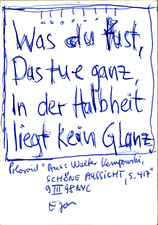 Was du tust,
Das tu-e ganz,
In der Halbheit
liegt kein Glanz
Aus: Walter Kempowski,
SCHÖNE AUSSICHT, S. 417
9 III 98 NYC